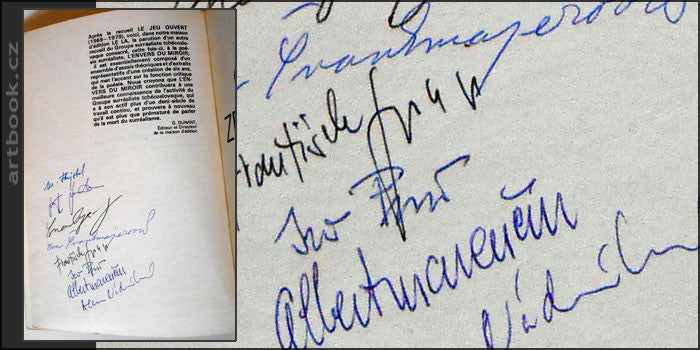 artbook.cz
Après le recueil LE JEU OUVERT
(1969—1979), voici, dans notre maison
d'édition LE LA, la parution d'un autre
recueil du Groupe surréaliste tchécoslo-
vaque consacré, cette fois-ci, à la poé-
sie surréaliste. L'ENVERS DU MIROIR,
est essentiellement composé d'un
ensemble d'essais théoriques et d'extraits
représentatifs d'une création de six ans,
qui met l'accent sur la fonction critique
de la poésie. Nous croyons que L'EN-
VERS DU MIROIR contribuera à une
meilleure connaissance de l'activité du
Groupe surréaliste tchécoslovaque, qui
a à son actif plus d'un demi-siècle de
travail continu, et prouvera à nouveau
qu'il est plus que prématuré de parler
de la mort du surréalisme.
G. DUNANT,
Éditeur et Directeur
de la maison d'édition
Eva Švankmajerová
František
Ivo
Albert Marenčin
Švankmajerová
František
Ivo
Albert Marenčin